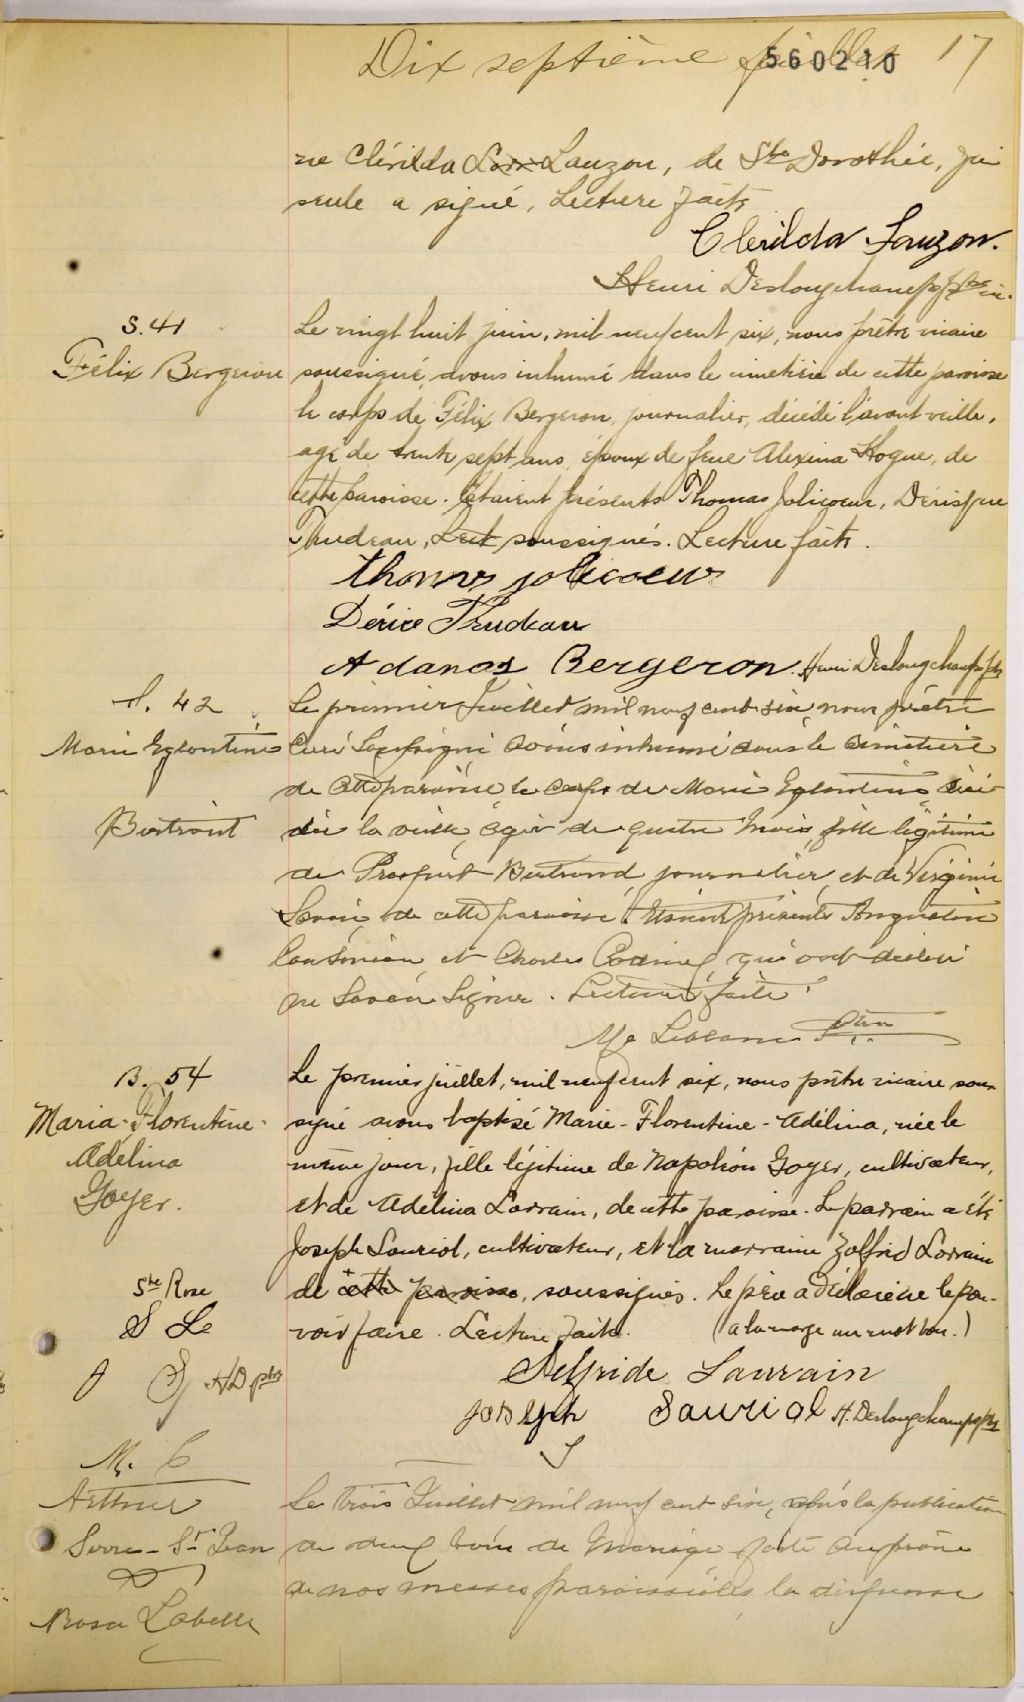 Dix septième feuillet 17
560210
ne Clérilda Lauzon, de Ste Dorothée, qui
seule a signé, Lecture faite
Clerilda Lauzon.
Henri Deslongchamps ptre vic.
S. 41
Félix Bergeron
Le vingt huit juin, mil neuf cent six, nous prêtre vicaire
soussigné, avons inhumé dans le cimetière de cette paroisse
le corps de Félix Bergeron, journalier, décédé l'avant veille,
agé de trente sept ans, époux de feue Alexina Hogue, de
cette paroisse. Etaient présents Thomas Jolicoeur, Dérisque
Trudeau, soussignés. Lecture faite.
thomas jolicoeur
Dérice Trudeau
Adanas Bergeron. Henri Deslongchamps ptre
S. 42
Marie Eglentine
Bertrand
Le premier Juillet mil neuf cent six, nous prêtre
Curé Soussigné avons inhumé dans le cimetière
de cette paroisse le corps de Marie Eglentine décé-
dée la veille, agée de quatre mois, fille légitime
de Bertrand journalier, et de Virginie
de cette paroisse. Etaient présents Augustin
et Charles qui ont déclaré
ne Savoir Signer. Lecture faite.
B. 54
Maria-Florentine-
Adélina
Goyer.
Le premier juillet, mil neuf cent six, nous prêtre vicaire sous-
signé avons baptisé Marie-Florentine-Adélina, née le
même jour, fille légitime de Napoléon Goyer, cultivateur,
et de Adélina Lorrain, de cette paroisse. Le parrain a été
Joseph Sauriol, cultivateur, et la marraine Zelfrid Lorrain
de cette paroisse, soussignés. Le père a déclaré ne le pou-
voir faire. Lecture faite. (a la marge un mot bon.)
Ste Rose
S L
J S HD ptre
Delfride Laurain
joseph Sauriol H. Deslongchamps ptre
M. 6
Arthur
Serre-St Jean
&
Rosa Labelle
Le trois Juillet mil neuf cent six, après la publication
de deux bans de Mariage faite au prône
de nos messes paroissiales, la dispense